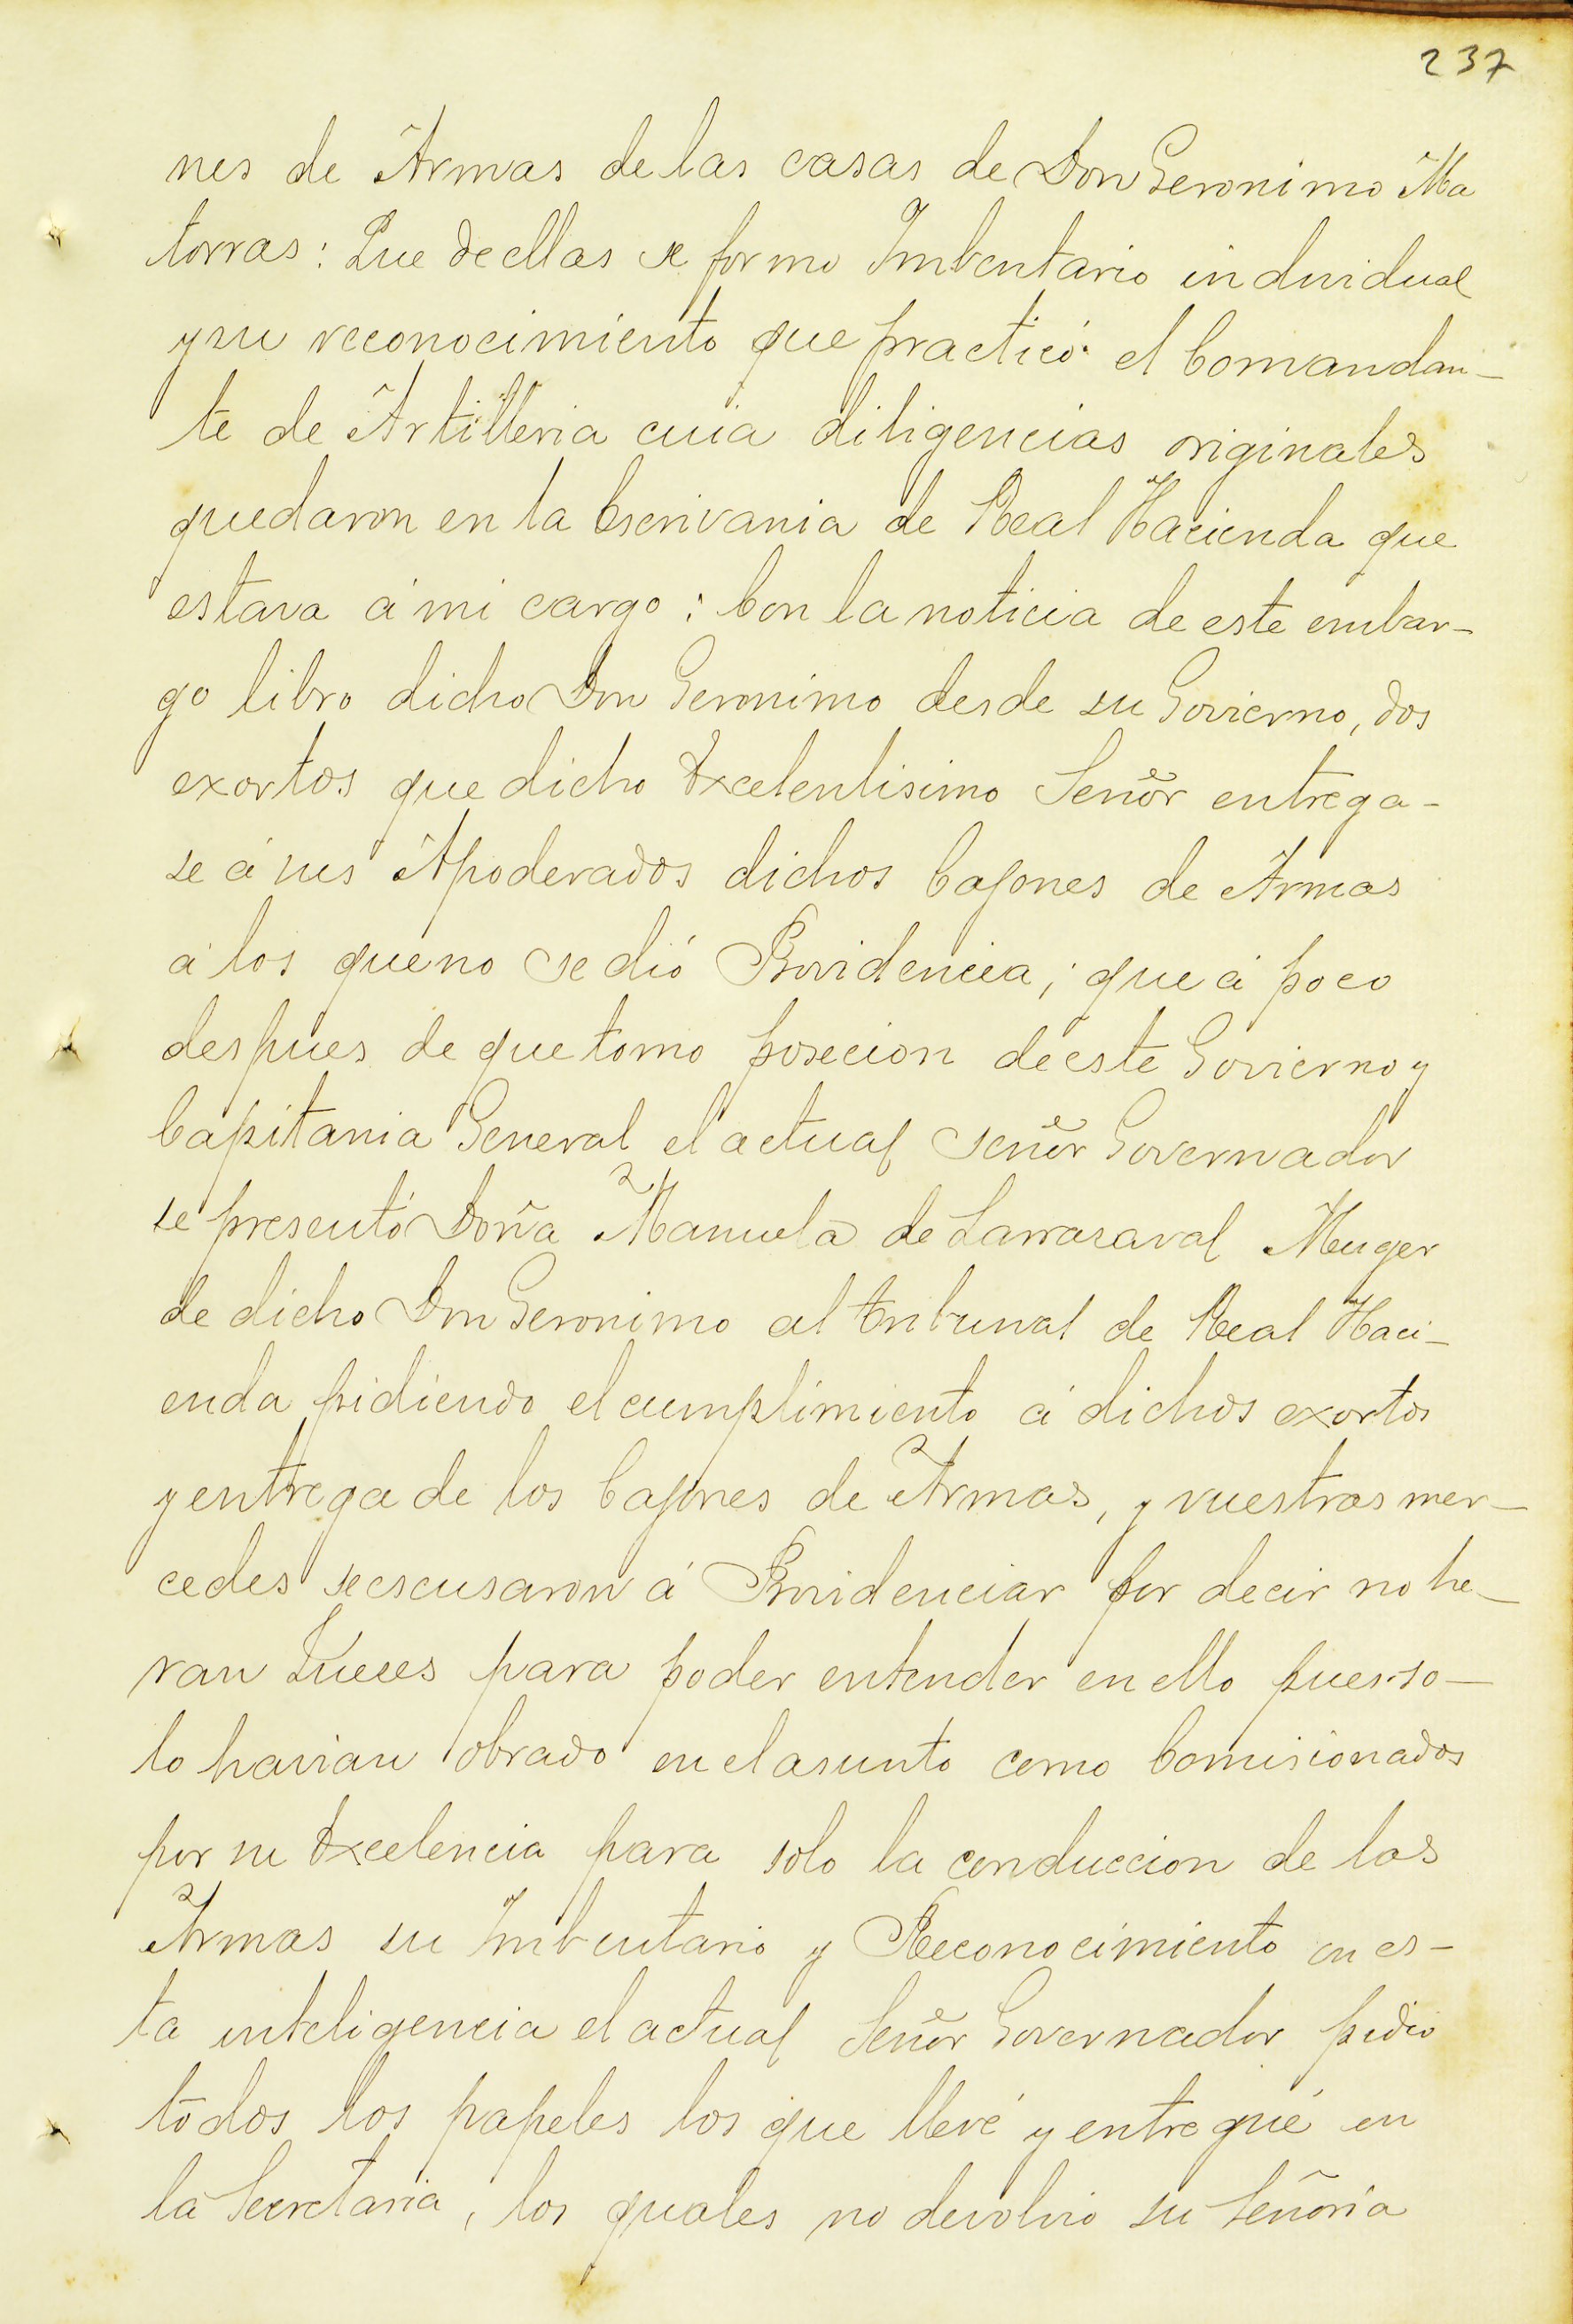 237
nes de Armas de las casas de Don Geronimo Ma
torras: Que de ellas se formo Imbentario individual
y su reconocimiento que practicó el Comandan-
te de Artilleria cuia diligencias originales
quedaron en la Escrivania de Real Hacienda que
estava á mi cargo: Con la noticia de este embar-
go libro dicho Don Geronimo desde su Govierno, dos
exortos que dicho Excelentisimo Señor entrega-
se á sus Apoderados dichos Cajones de Armas
á los que no se dió Providencia; que á poco
despues de que tomo posecion de este Govierno y
Capitania General el actual señor Governador
se presentó Doña Manuela de Larrasaval Muger
de dicho Don Geronimo al tribunal de Real Haci-
enda pidiendo el cumplimiento á dichos exortos
y entrega de los Cajones de Armas, y vuestras mer-
cedes se escusaron á Providenciar por decir no he-
ran Jueces para poder entender en ello pues so-
lo havian obrado en el asunto como Comisionados
por su Excelencia para solo la conduccion de las
Armas su Imbentario y Reconocimiento en es-
ta inteligencia el actual Señor Governador pidio
todos los papeles los que llevé y entregué en
la Secretaria, los quales no devolvio su Señoria